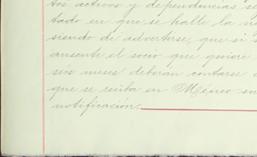 tos activos y dependencias
tado en que se halle la
siendo de advertirse, que si
ausente el socio que quiere
seis meses deberán contarse
que se reciba en México
notificación.